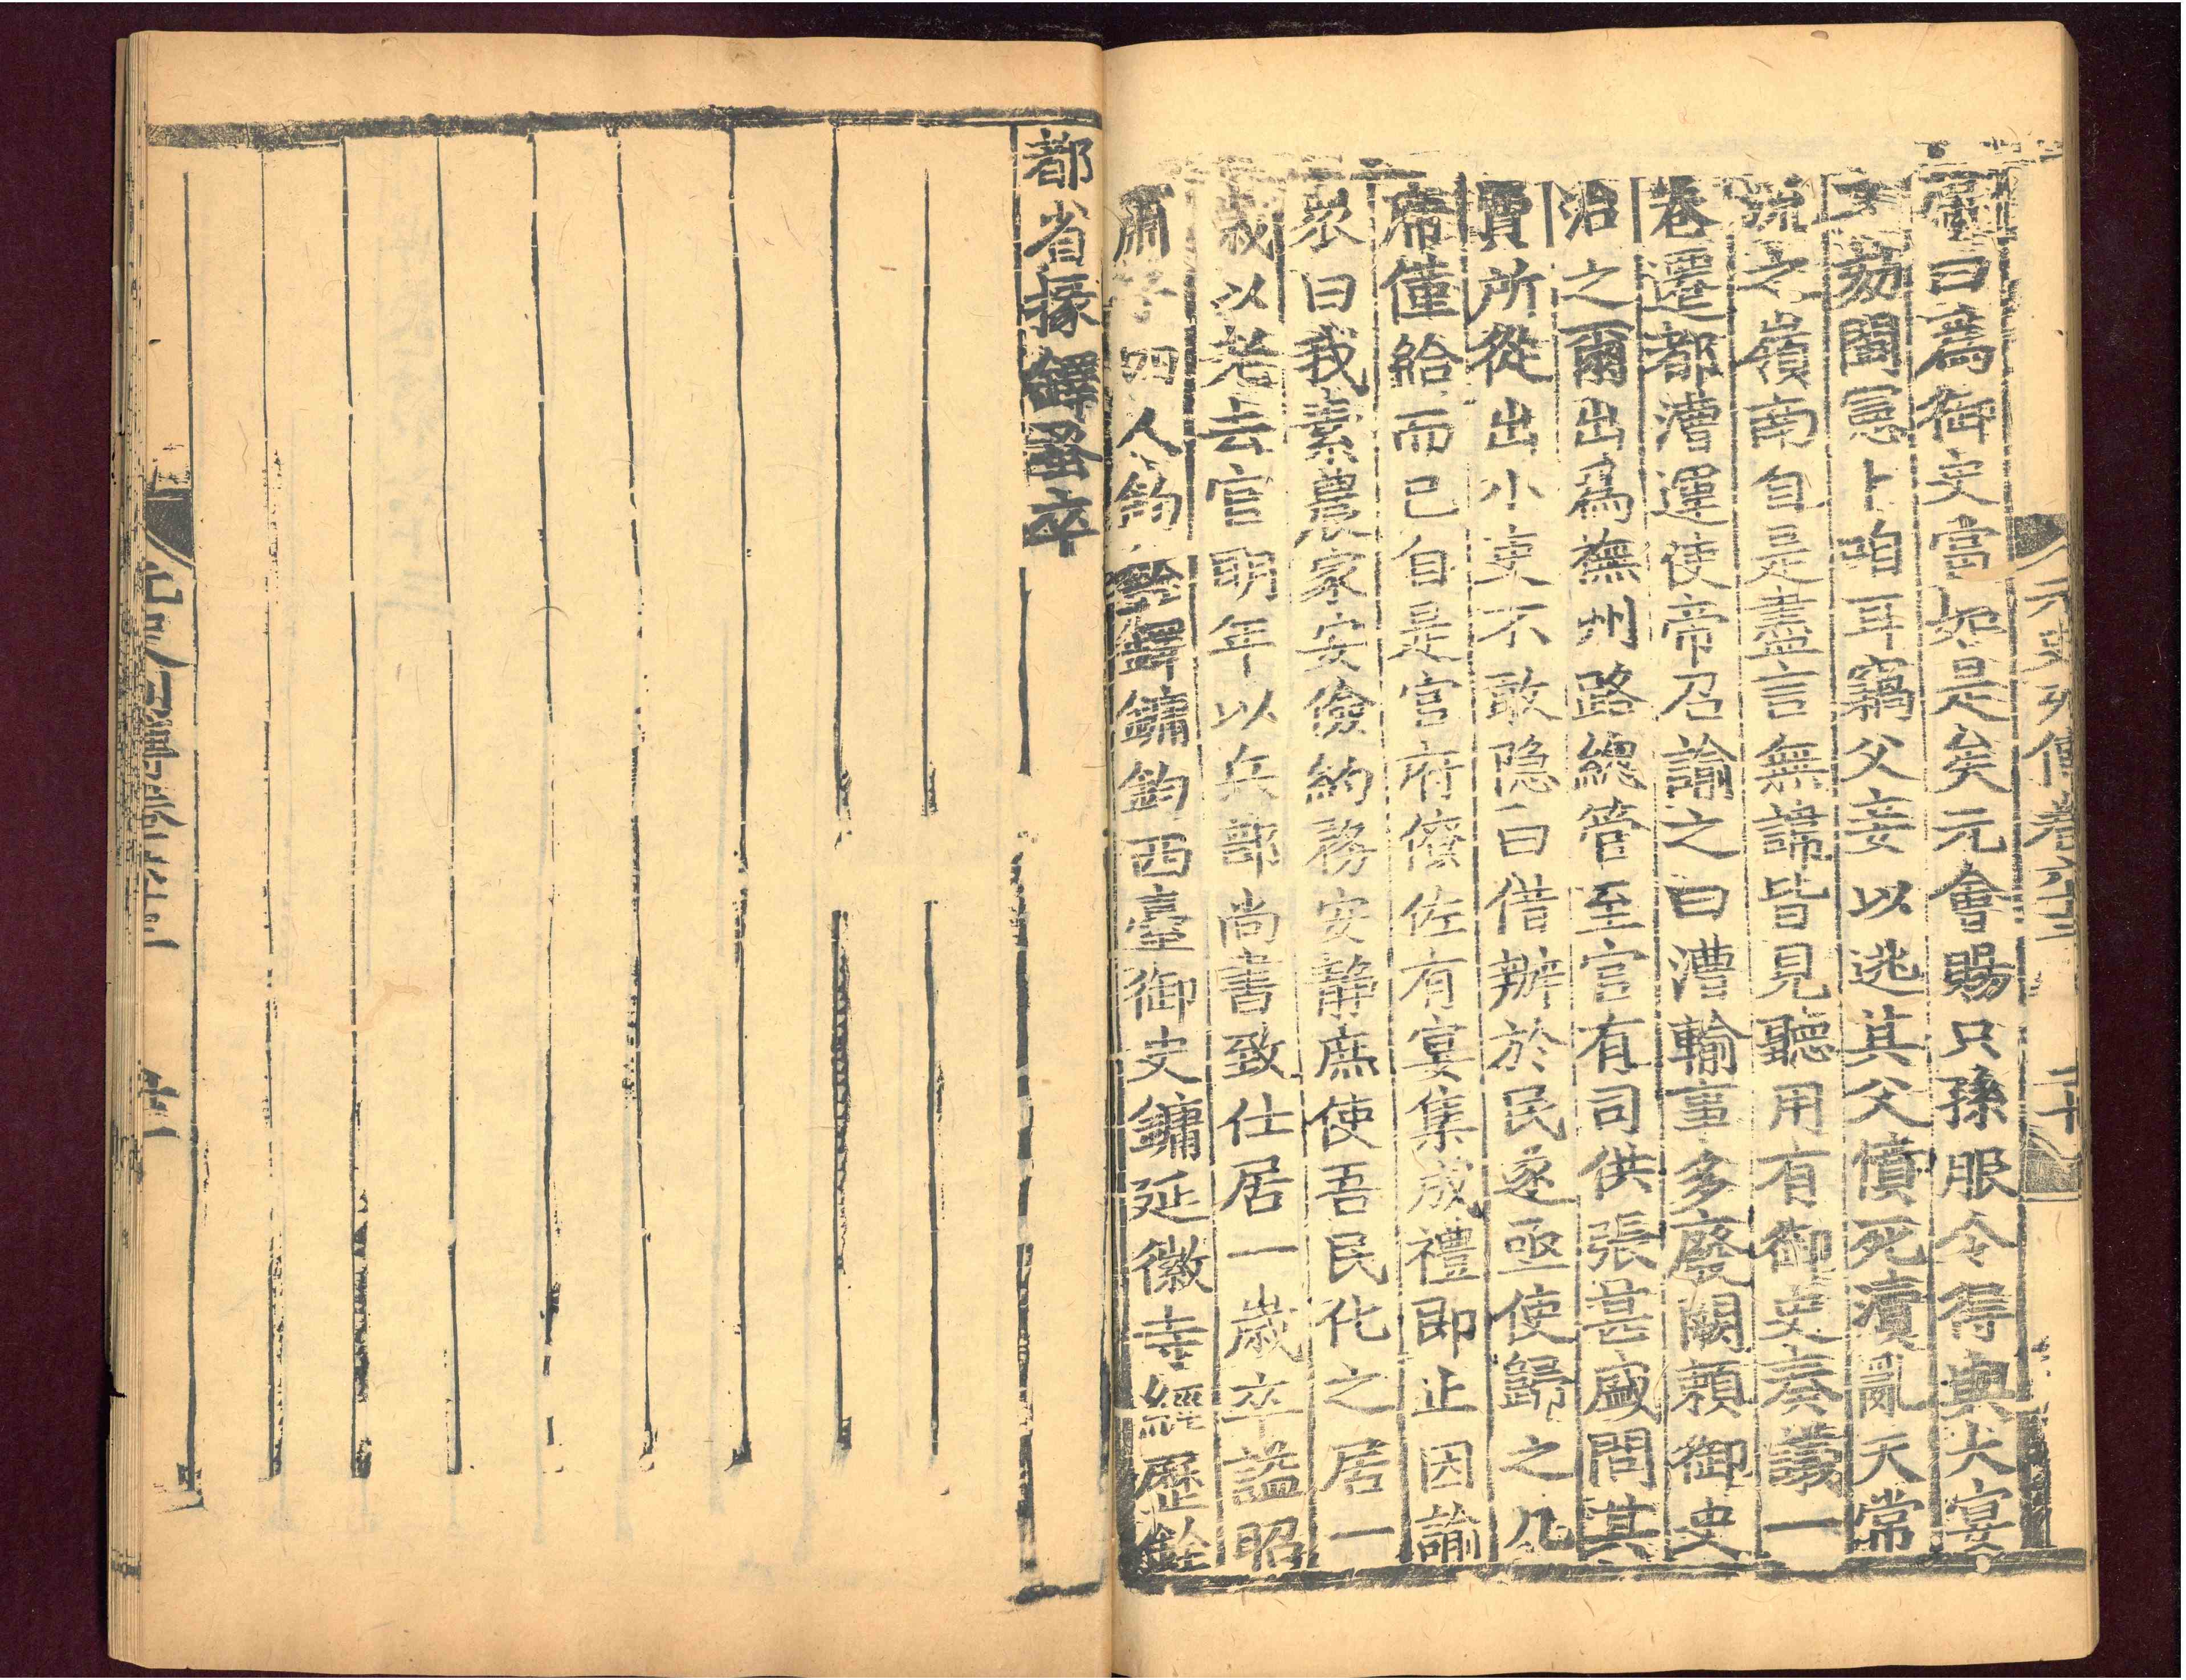 臺曰為御史當如是矣元會賜只孫服令得與大宴
文劾閩憲卜咱耳竊父妾以逃其父憤死瀆亂天常
流之嶺南自是盡言無諱皆見聽用有御史奏議一
卷遷都漕運使帝召諭之曰漕輸事多廢闕賴御史
治之爾出為撫州路總管至官有司供張甚盛問其
費所從出小吏不敢隐曰借辦於民遂亟使歸之几
席僅給而已自是官府僚佐有宴集成禮即止因諭
衆曰我素農家安儉約務安靜庶使吾民化之居一
歲以老去官明年以兵部尚書致仕居一歲卒諡昭
肅子四人鈞鐸鏞鈞西臺御史鏞延徽寺經歷銓
都省掾鐸蚤卒
元史列傳卷
二十